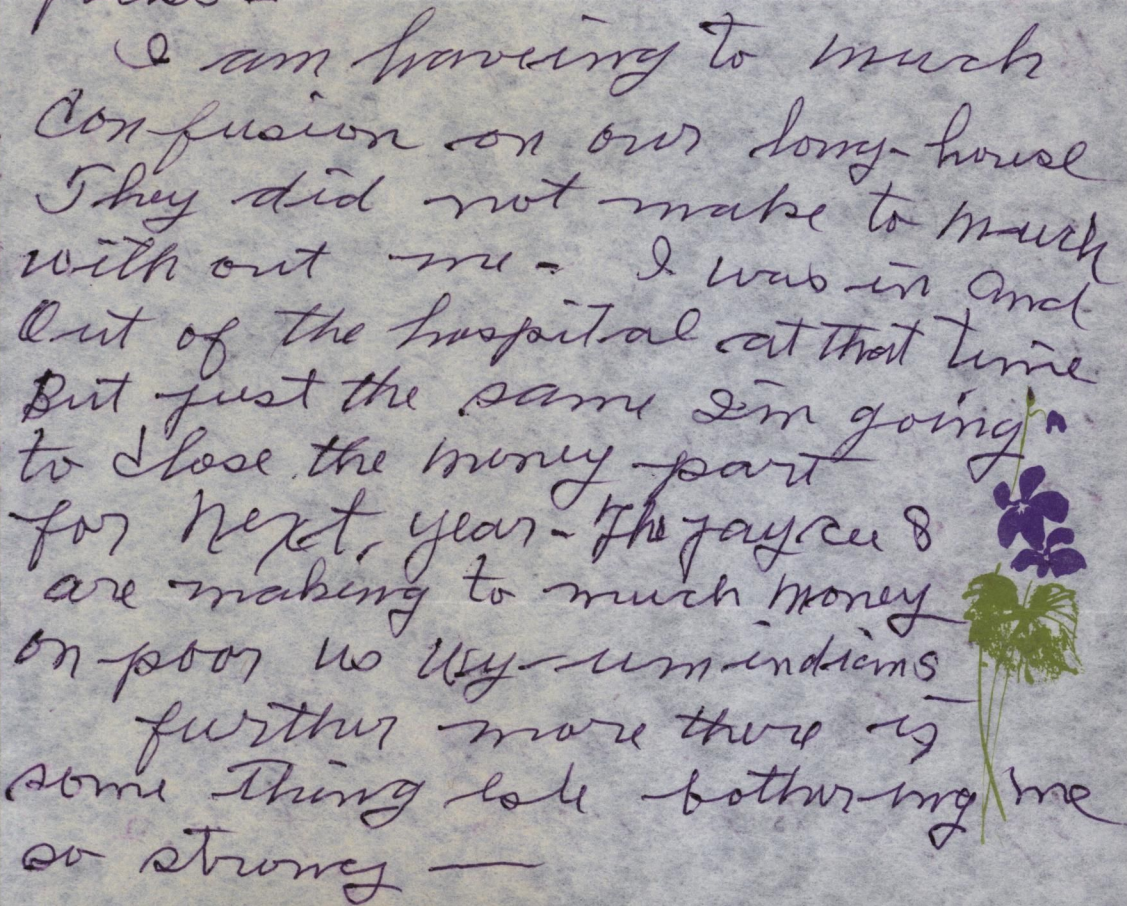 I am haveing to much
Confusion on our long-house
They did not make to much
with out me - I was in and
Out of the hospital at that time
But just the same I'm going
to close the money part
for next, year - The jaycee 8
are making to much money
on poor us indians
further more there is
some thing else bothering me
so strong —